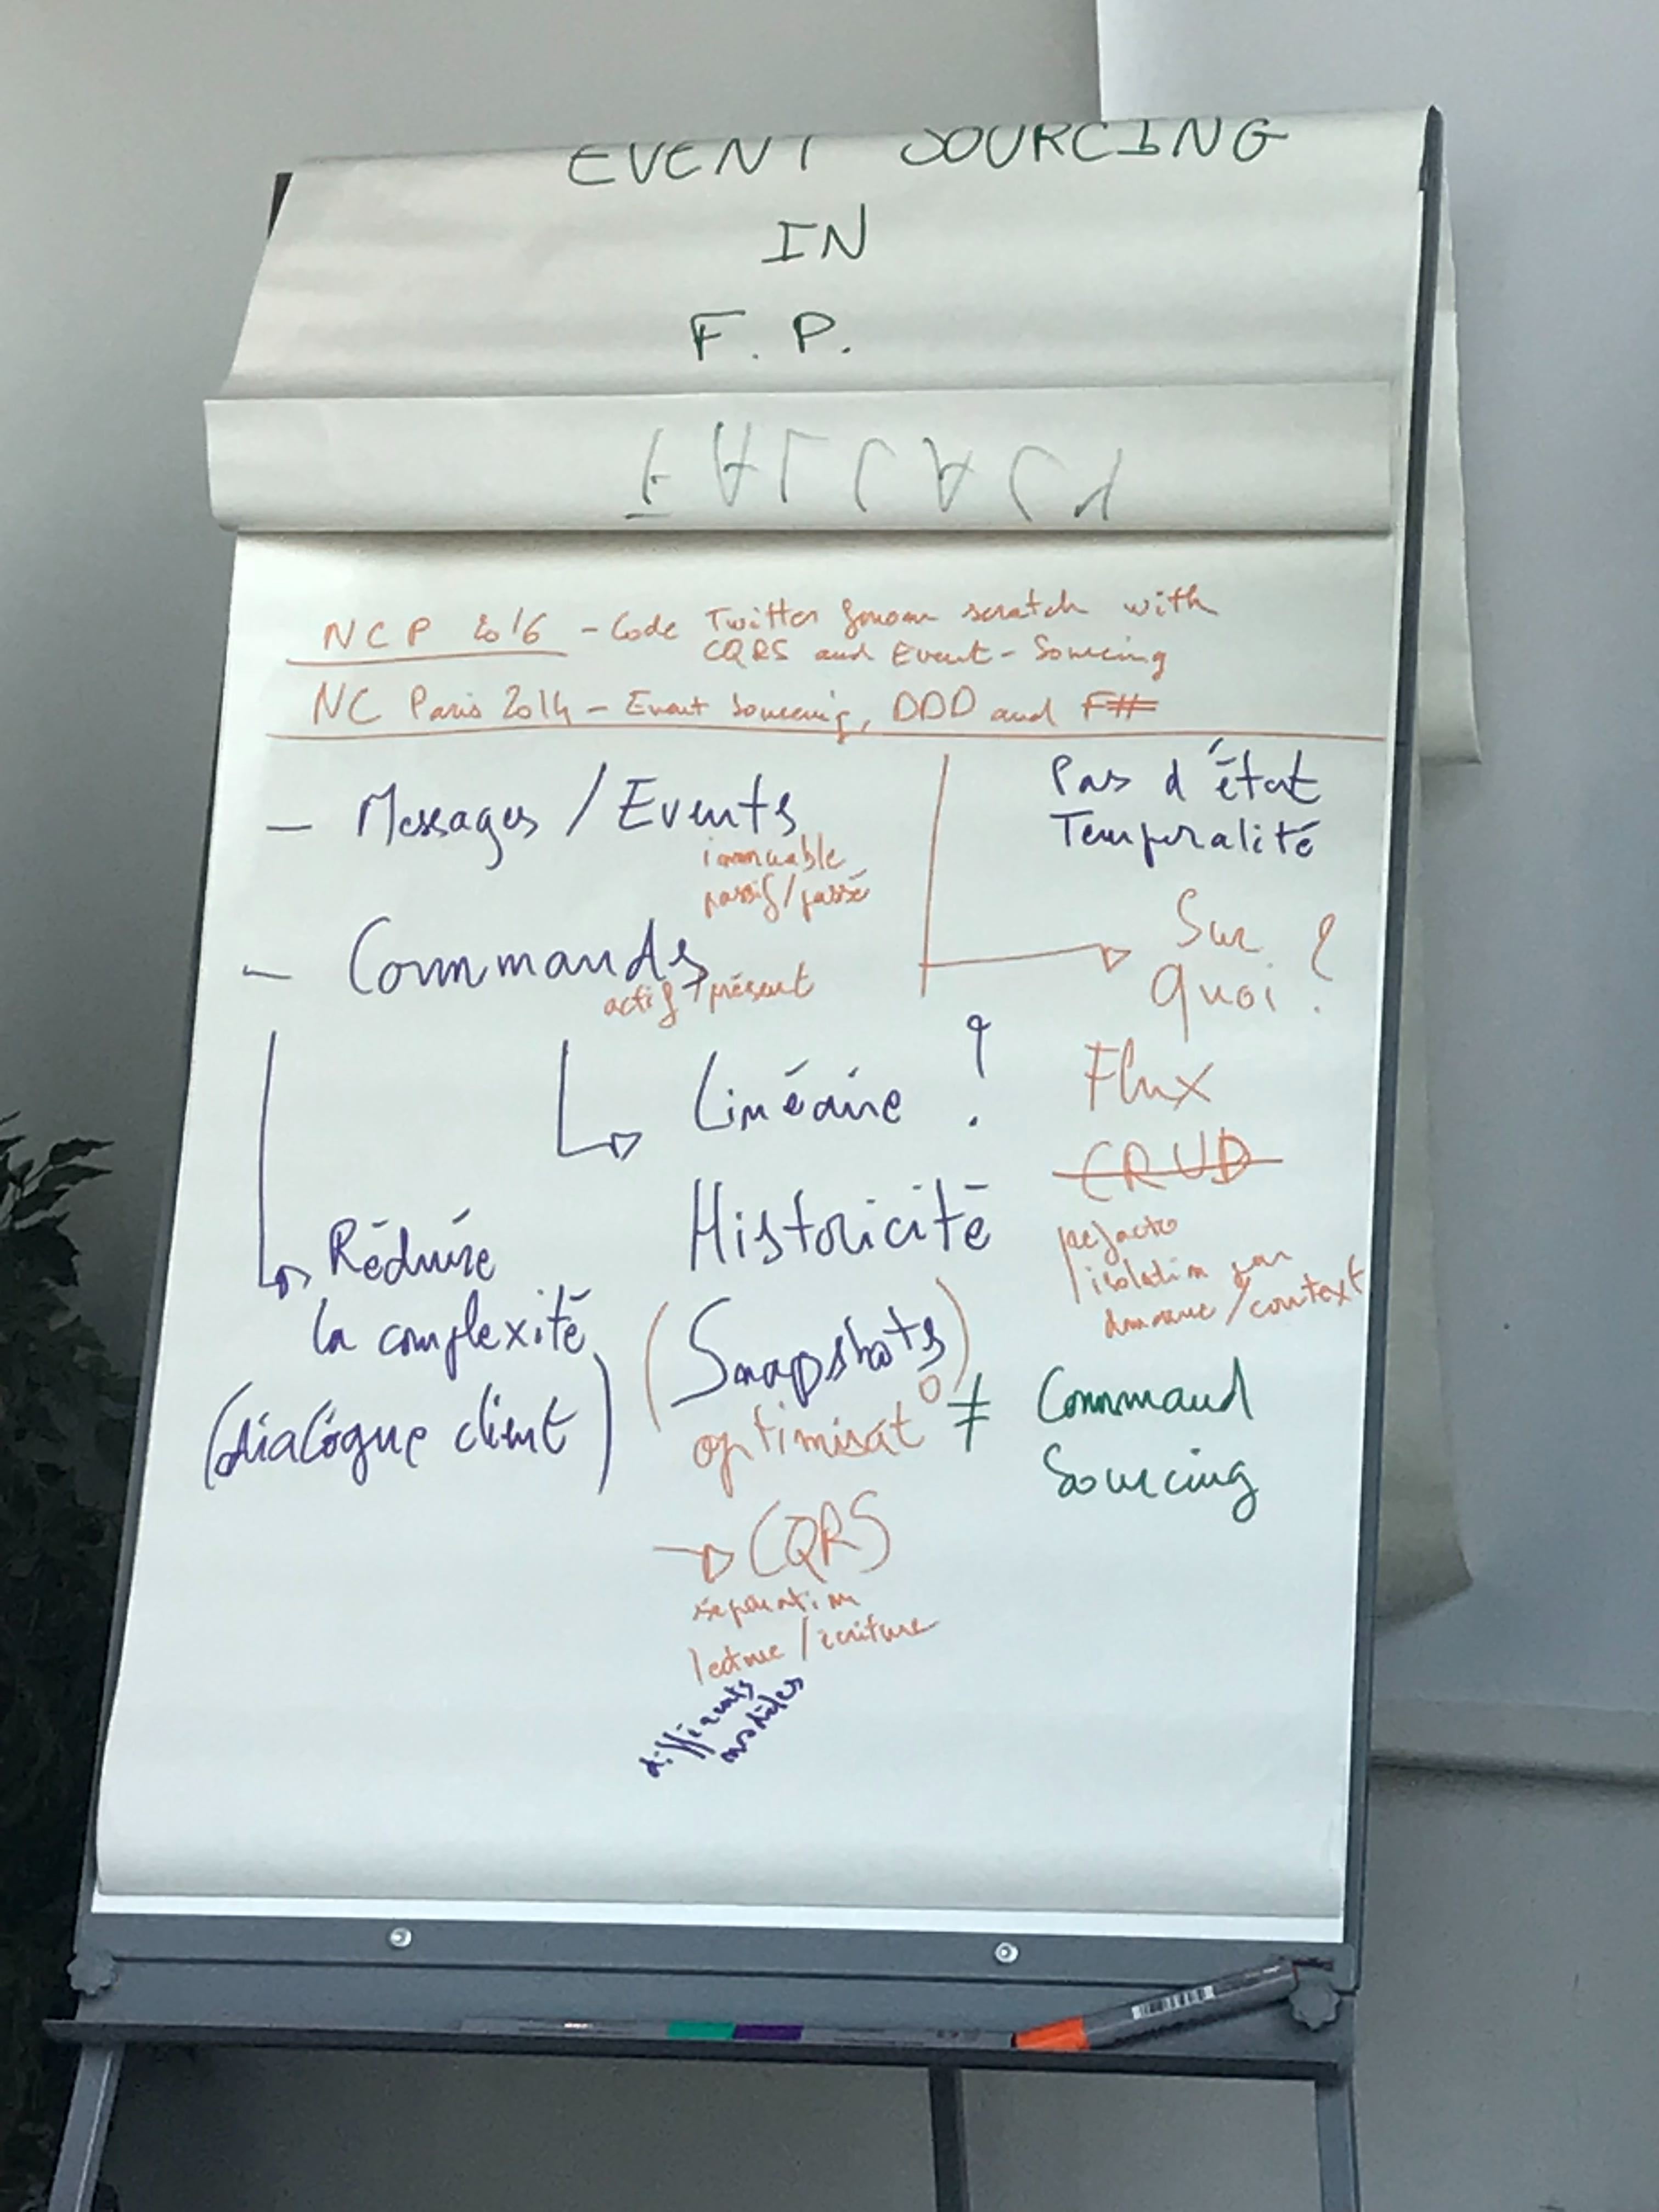 EVENT SOURCING
IN
F. P.
NCP 2016 - Code Twitter from scratch with
CQRS and Event-Sourcing
NC Paris 2014 - Event Sourcing, DDD and F#
- Messages / Events
immuable
passif/passé
- Commands
actif/présent
Linéaire ?
Historicité
(Snapshots)
optimisat°
→ CQRS
séparation
lecture/écriture
différents
modèles
Réduire
la complexité
(dialogue client)
Pas d'état
Temporalité
Sur
quoi ?
Flux
CRUD
refacto
isolation par
domaine/context
≠ Command
Sourcing